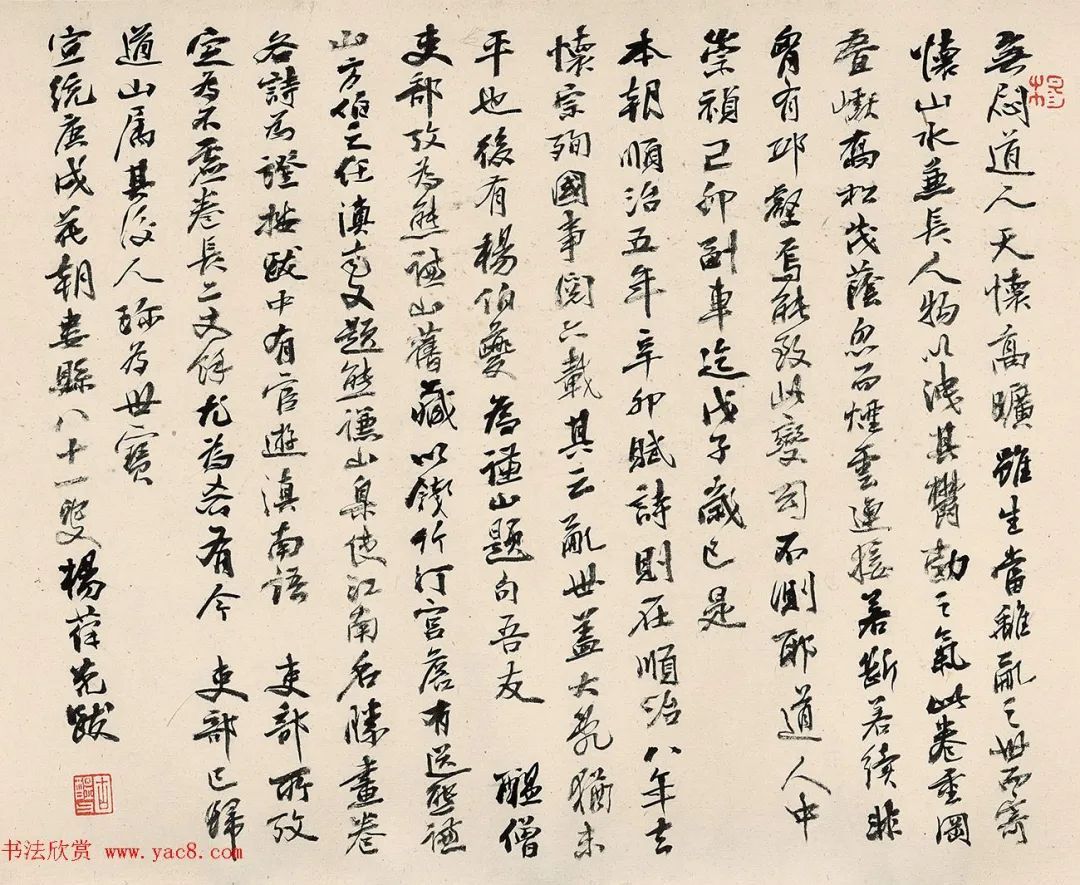 無悶道人天懷高曠雖生當離亂之世而寄
懷山水兼長人物以洩其鬱勃之氣此卷重岡
疊巘喬松茂蔭忽而煙雲連蜷若斷若續非
胸有邱壑焉能致此變幻不測耶道人中
崇禎己卯副車迄戊子歲已是
本朝順治五年辛卯賦詩則在順治八年去
懷宗殉國事閱六載其云亂世蓋大亂猶未
平也後有楊伯夔為謹山題句吾友 醞僧
吏部攷為熊謙山舊藏以錢竹汀宮詹有送熊謙
山方伯之任滇南又題熊謙山臬使江南名勝畫卷
各詩為證按跋中有官遊滇南語 吏部所攷
定為不虛卷長二丈餘尤為希有今 吏部已歸
道山屬其後人珍為世寶
宣統庚戌花朝婁縣八十一叟楊葆光跋
书法欣赏 www.yac8.com